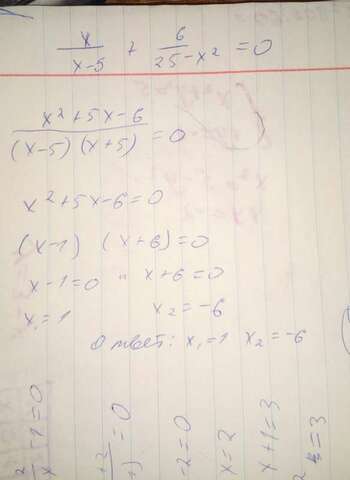 x/(x-5) + 6/(25-x²) = 0
(x²+5x-6)/((x-5)(x+5)) = 0
x²+5x-6=0
(x-1) (x+6)=0
x-1=0 и x+6=0
x₁=1 x₂=-6
Ответ: x₁=1 x₂=-6
-1=0
=0
-2=0
x=2
x+1=3
=3